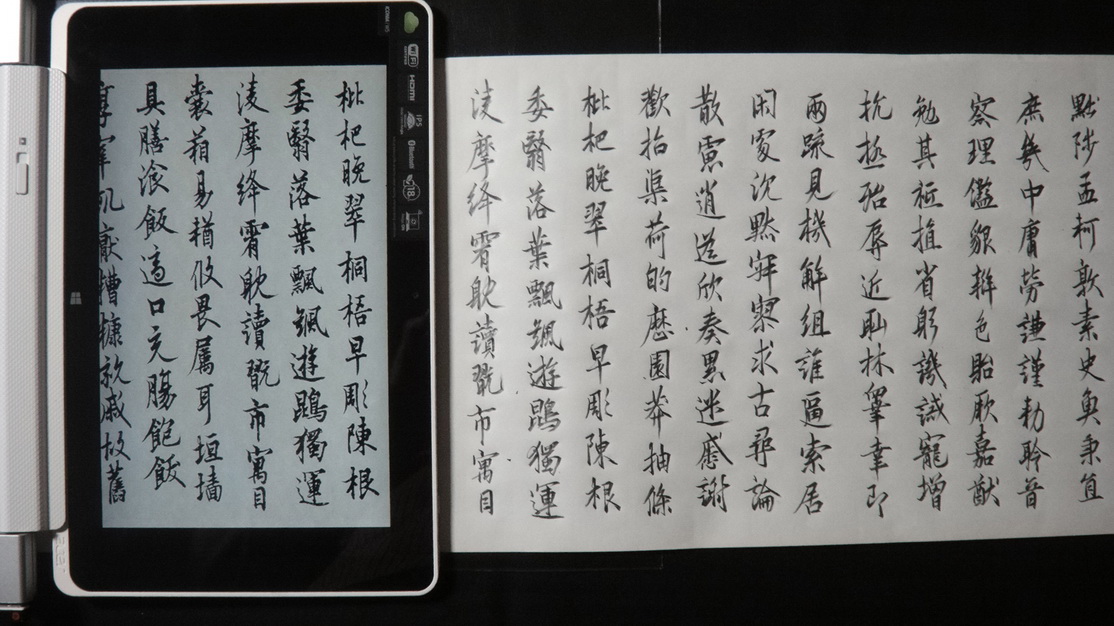 黜陟孟軻敦素史魚秉直
庶幾中庸勞謙謹勑聆音
察理鑑貌辨色貽厥嘉猷
勉其祗植省躬譏誡寵增
抗極殆辱近恥林皋幸即
兩疏見機解組誰逼索居
閑處沈默寂寥求古尋論
散慮逍遙欣奏累遣慼謝
歡招渠荷的歷園莽抽條
枇杷晚翠桐梧早彫陳根
委翳落葉飄颻遊鵾獨運
淩摩絳霄耽讀翫市寓目
枇杷晚翠桐梧早彫陳根
委翳落葉飄颻遊鵾獨運
淩摩絳霄耽讀翫市寓目
囊箱易輶攸畏屬耳垣墻
具膳飡飯適口充腸飽飯
宰飢厭糟糠親戚故舊
WiFi
HDMI
IPS
Bluetooth